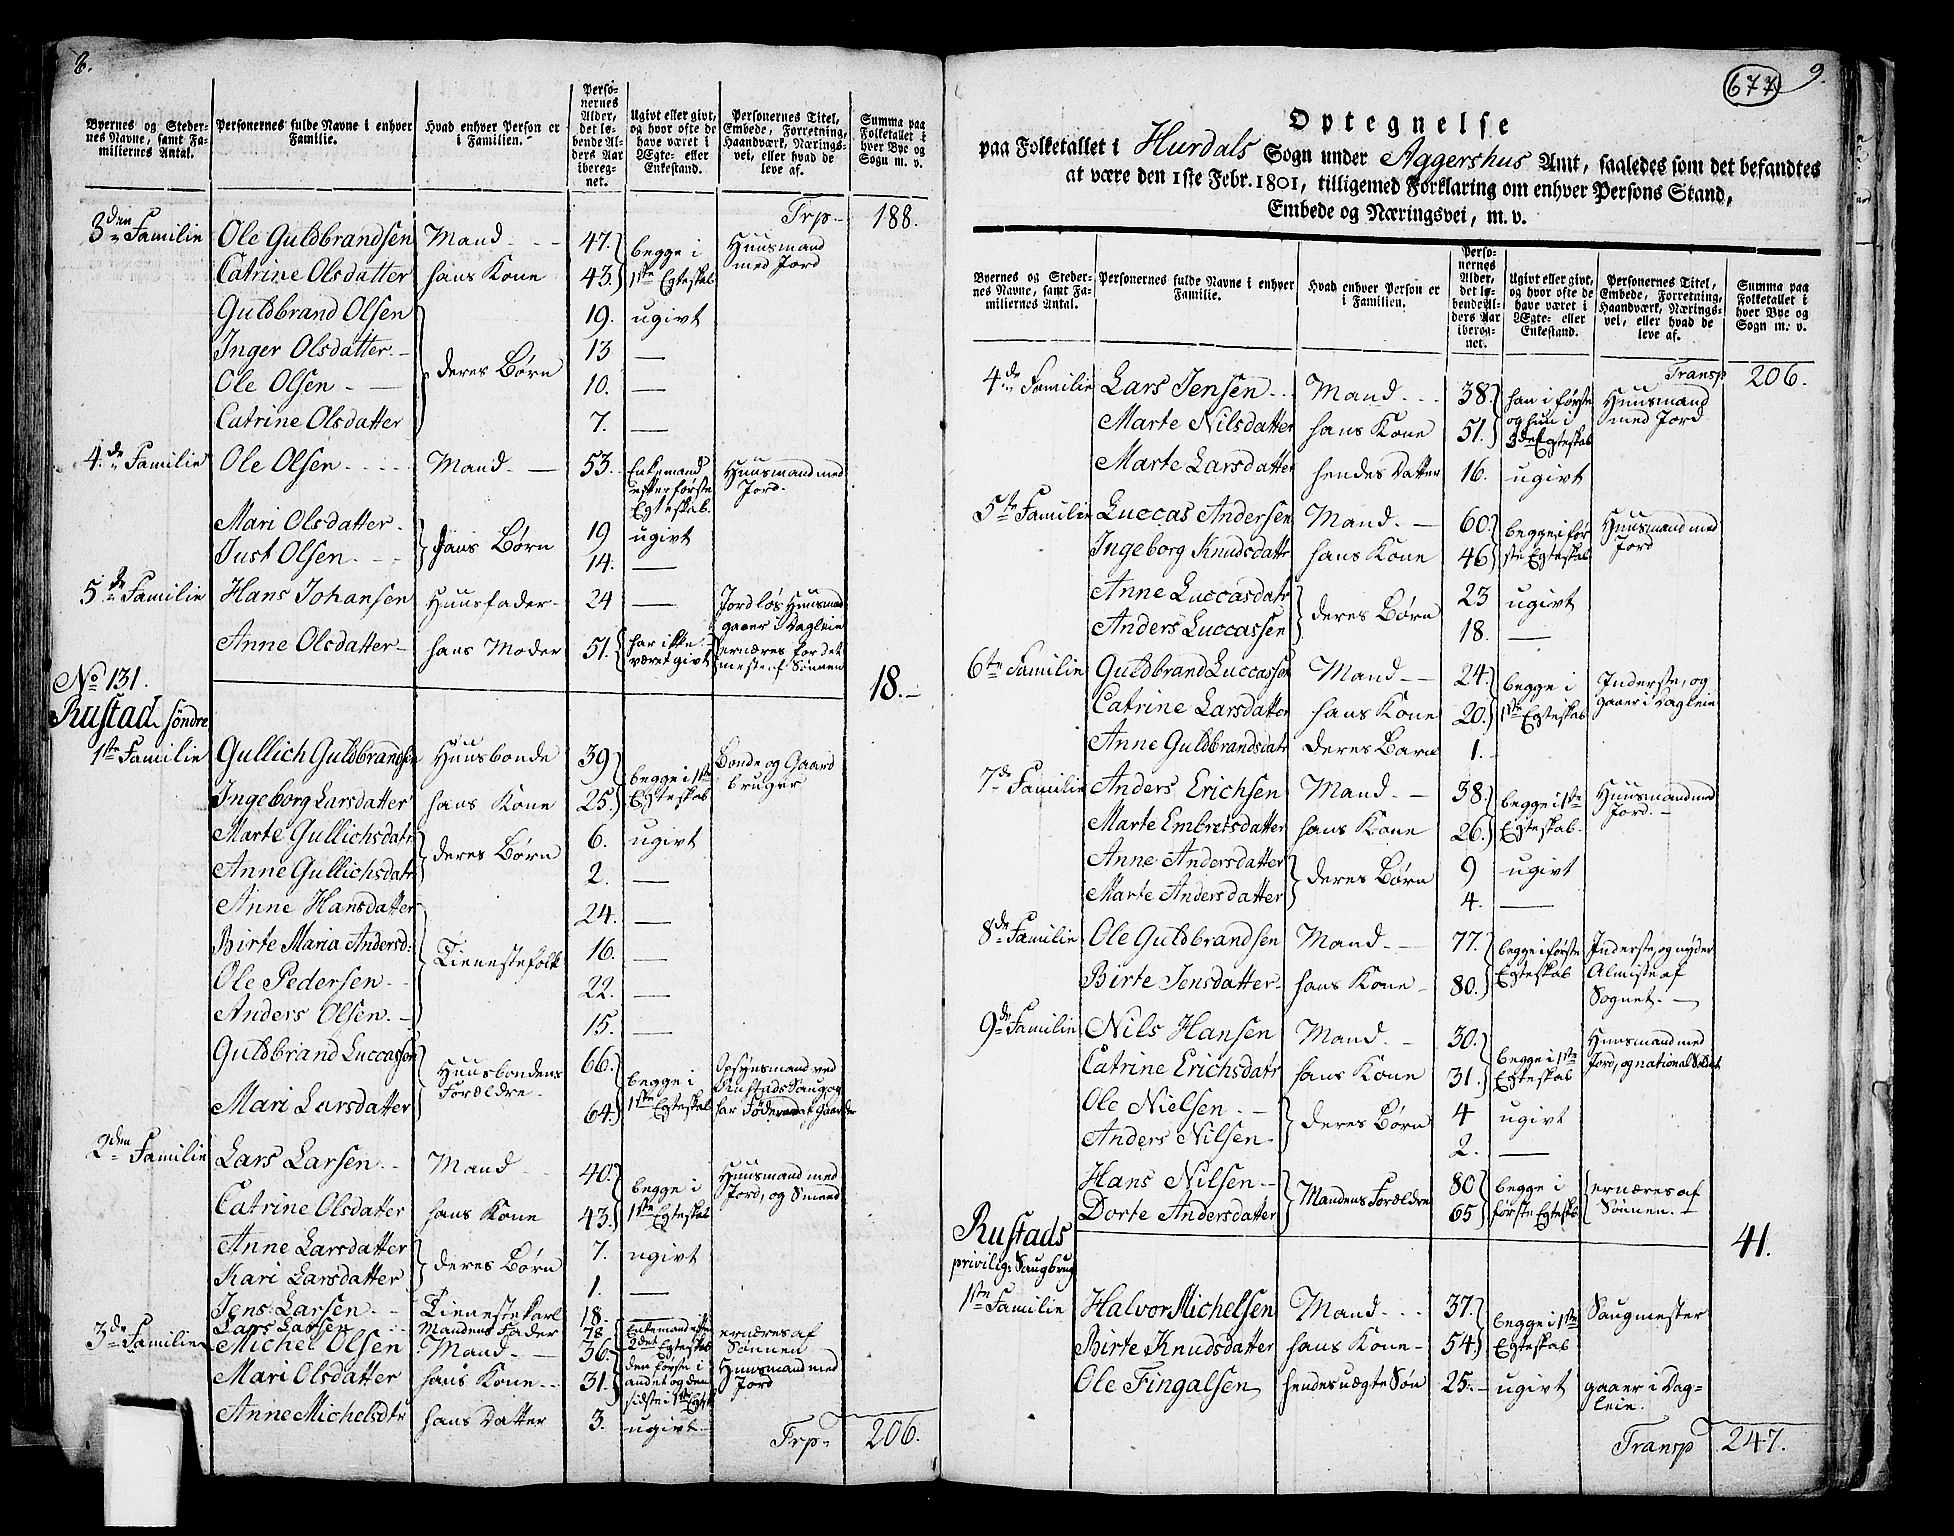 8.
Byernes og Stedernes Navne, samt Familiernes Antal. | Personernes fulde Navne i enhver Familie. | Hvad enhver Person er i Familien. | Personernes Alder, det løbende Alders Aar iberegnet. | Ugivt eller givt, og hvor ofte de have været i Ægte- eller Enkestand. | Personernes Titel, Embede, Forretning, Haandværk, Næringsvei, eller hvad de leve af. | Summa paa Folketallet i hver Bye og Sogn m. v.
Trp. 188.
3den Familie Ole Guldbrandsen Mand 47. begge i 1ste Egteskab Huusmand med Jord
Catrine Olsdatter hans Kone 43.
Guldbrand Olsen deres Børn 19. ugivt
Inger Olsdatter 13 —
Ole Olsen 10. —
Catrine Olsdatter 7. —
4de Familie Ole Olsen Mand 53. Enkemand efter første Egteskab. Huusmand med Jord.
Mari Olsdatter hans Børn 19 ugivt
Just Olsen 14. —
5te Familie Hans Johansen Huusfader 24 — Jordløs Huusmand gaaer i Dagleie
Anne Olsdatter hans Moder 51. har ikke været givt ernæres for det meste af Sønnen
18.
No 131.
Rustad søndre
1ste Familie Gullich Guldbrandsen Huusbonde 39 begge i 1ste Egteskab Bonde og Gaardbruger
Ingeborg Larsdatter hans Kone 25.
Marte Gullichsdatr deres Børn 6. ugivt
Anne Gullichsdatr 2. —
Anne Hansdatter Tienestefolk 24. —
Birte Maria Andersd: 16. —
Ole Pedersen 22. —
Anders Olsen 15. —
Guldbrand Luccassen Huusbondens Forældre 66. begge i 1ste Egteskab Opsynsmand ved Rustads Saug og har Føderaad af Gaarden
Mari Larsdatter 64.
2den Familie Lars Larsen Mand 40. begge i 1ste Egteskab Huusmand med Jord, og Smeed
Catrine Olsdatter hans Kone 43.
Anne Larsdatter deres Børn 7. ugivt
Kari Larsdatter 1. —
Jens Larsen Tienestekarl 18. —
Lars Larsen Mandens Fader 78. Enkemand efter 2det Egteskab ernæres af Sønnen
3de Familie Michel Olsen Mand 36. den første i andet og den sidste i 1ste Egtsk Huusmand med Jord
Mari Olsdatter hans Kone 31.
Anne Michelsdtr hans Datter 3. ugivt
Trp. 206.
677
9.
Optegnelse
paa Folketallet i Hurdals Sogn under Aggershus Amt, saaledes som det befandtes
at være den 1ste Febr. 1801, tilligemed Forklaring om enhver Persons Stand,
Embede og Næringsvei, m. v.
Byernes og Stedernes Navne, samt Familiernes Antal. | Personernes fulde Navne i enhver Familie. | Hvad enhver Person er i Familien. | Personernes Alder, det løbende Alders Aar iberegnet. | Ugivt eller givt, og hvor ofte de have været i Ægte- eller Enkestand. | Personernes Titel, Embede, Forretning, Haandværk, Næringsvei, eller hvad de leve af. | Summa paa Folketallet i hver Bye og Sogn m. v.
Transp 206.
4de Familie Lars Jensen Mand 38. han i første og hun i 3det Egteskab Huusmand med Jord
Marte Nilsdatter hans Kone 51.
Marte Larsdatter hendes Datter 16. ugivt
5te Familie Luccas Andersen Mand 60. begge i første Egteskab Huusmand med Jord
Ingeborg Knudsdatr hans Kone 46
Anne Luccasdatr deres Børn 23 ugivt
Anders Luccassen 18. —
6te Familie Guldbrand Luccassen Mand 24. begge i 1ste Egteskab Inderste, og gaaer i Dagleie
Catrine Larsdatter hans Kone 20.
Anne Guldbrandsdatr deres Barn 1.
7de Familie Anders Erichsen Mand 38. begge i 1ste Egteskab. Huusmand med Jord.
Marte Embretsdatter hans Kone 26.
Anne Andersdatter deres Børn 9 ugivt
Marte Andersdatter 4. —
8de Familie Ole Guldbrandsen Mand 77. begge i første Egteskab Inderste, og nyder Almisse af Sognet.
Birte Jensdatter hans Kone 80.
9de Familie Nils Hansen Mand 30. begge i 1ste Egteskab Huusmand med Jord, og national Soldat
Catrine Erichsdatr hans Kone 31.
Ole Nielsen deres Børn 4 ugivt
Anders Nilsen 2. —
Hans Nilsen Mandens Forældre 80 begge i første Egteskb ernæres af Sønnen.
Dorte Andersdatter 65
41.
Rustads
privilig: Saugbrug
1ste Familie Halvor Michelsen Mand 37. begge i 1ste Egteskab Saugmester
Birte Knudsdatter hans Kone 54
Ole Fingalsen hendes uægte Søn 25. ugivt gaaer i Dagleie.
Transp 247.